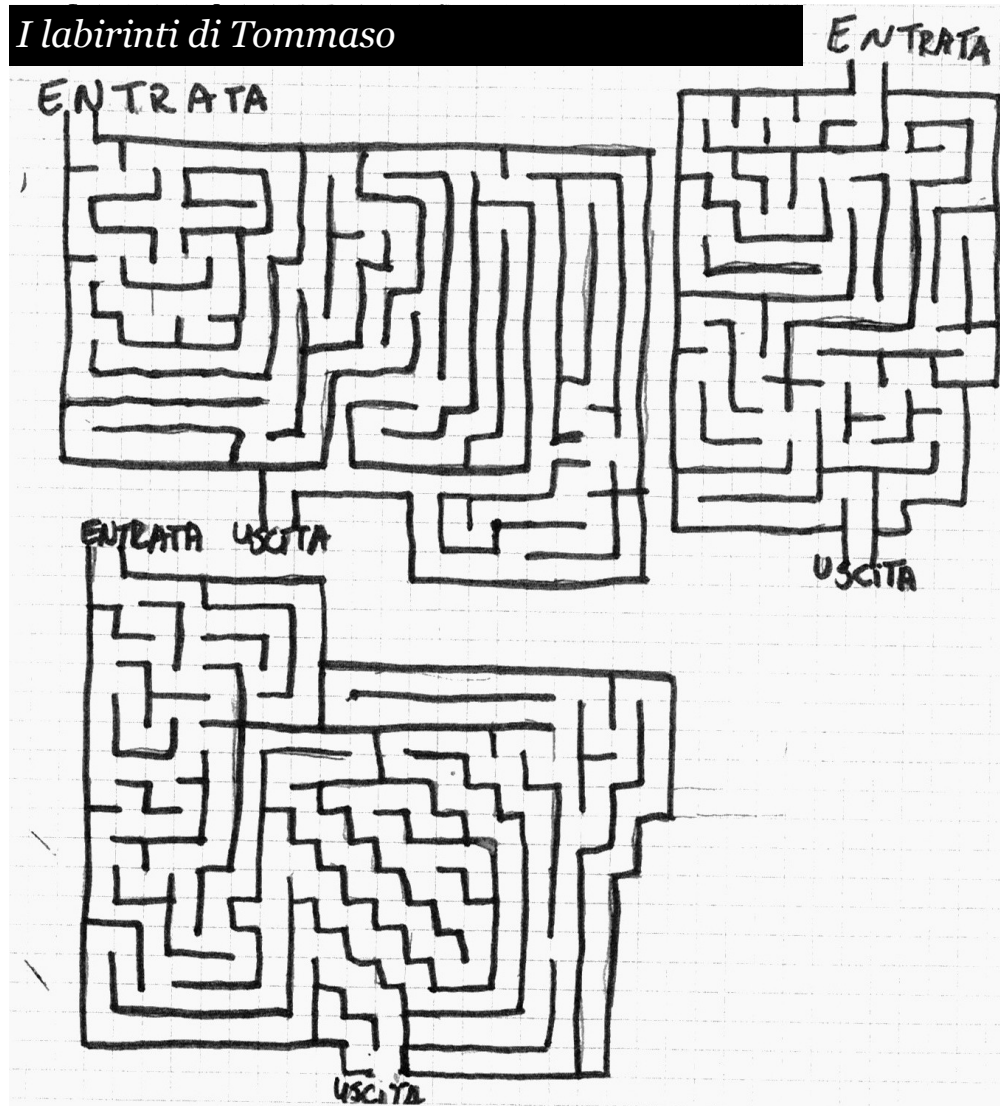 I labirinti di Tommaso
ENTRATA
ENTRATA
ENTRATA
USCITA
USCITA
USCITA